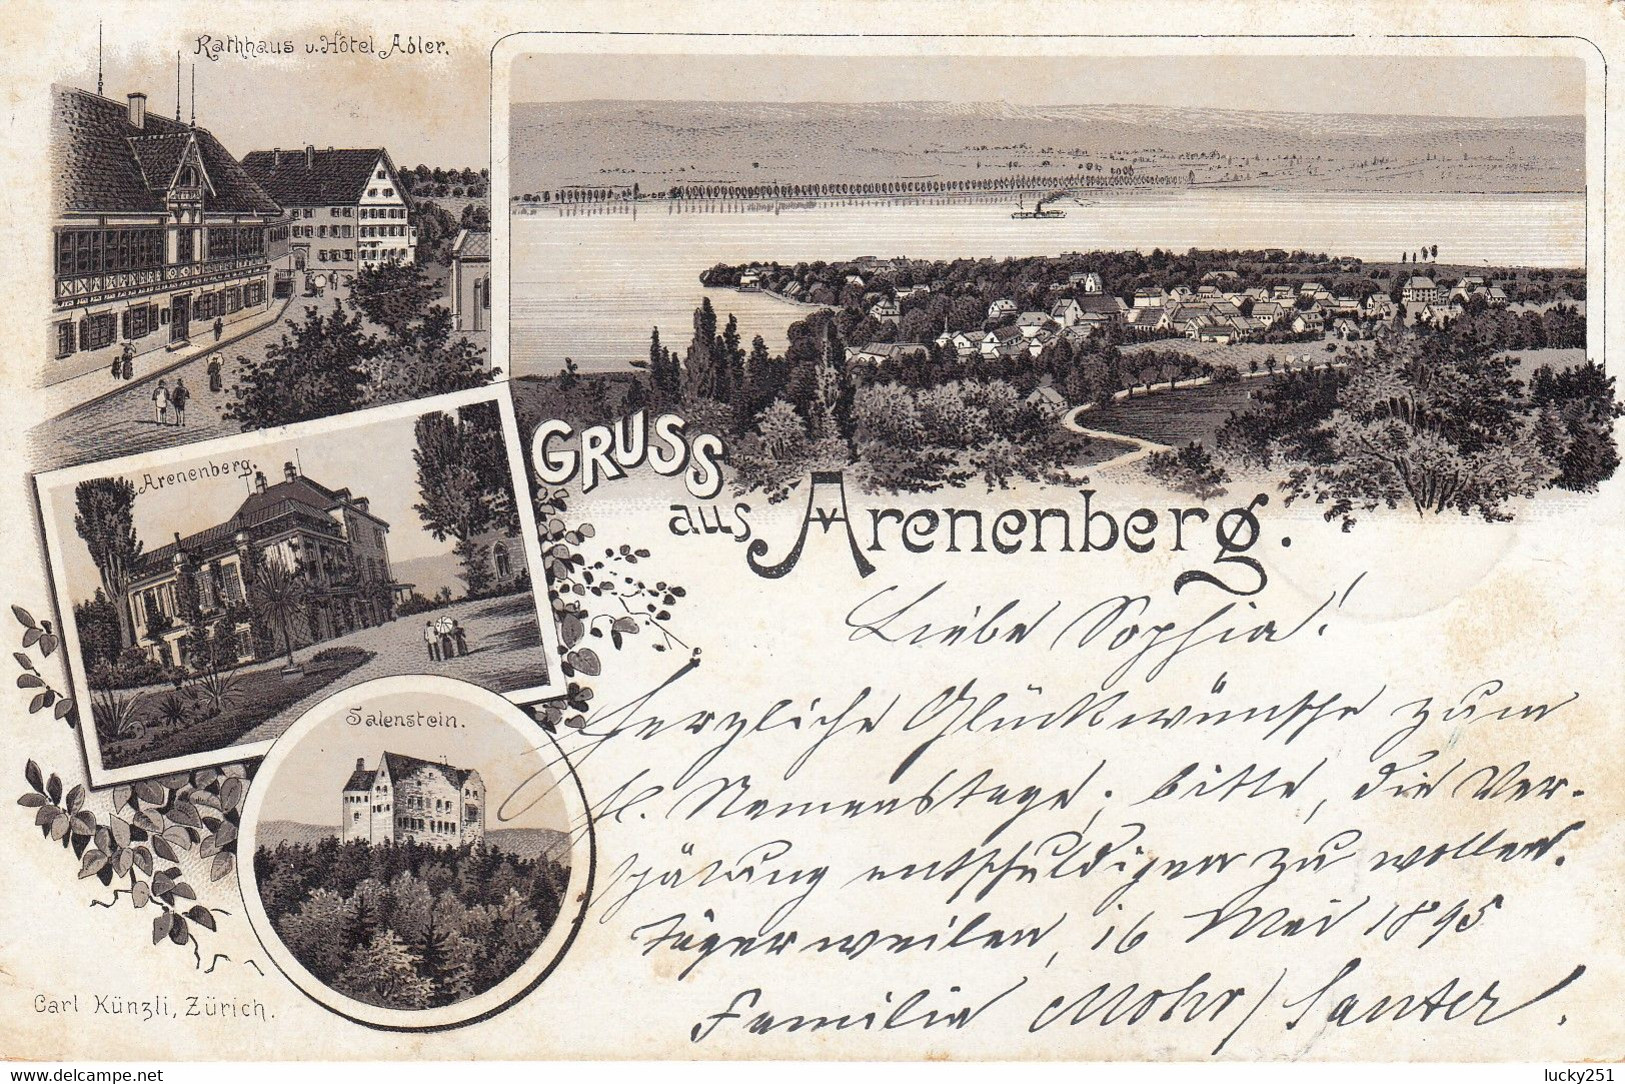 Rathhaus u. Hôtel Adler.
Arenenberg.
Salenstein.
GRUSS
aus Arenenberg.
Liebe Sophia!
Herzliche Glückwünsche zum
hl. Namenstage, bitte, die Ver-
spätung entschuldigen zu wollen.
Tägerweilen, 16 Mai 1895
Familie Mohr / Sauter.
Carl Künzli, Zürich.
delcampe.net
lucky251